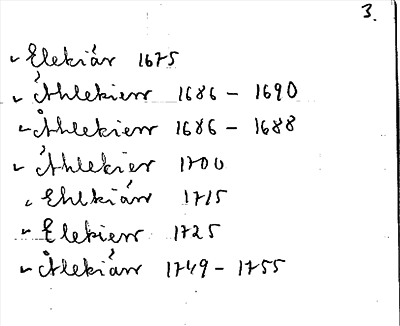 3.
" Elekiár 1675
" Áthlekierr 1686 - 1690
" Åthlekierr 1686 - 1688
" Áthlekier 1700
" Ehlkiárr 1715
" Elekierr 1725
" Åtlekiárr 1749 - 1755